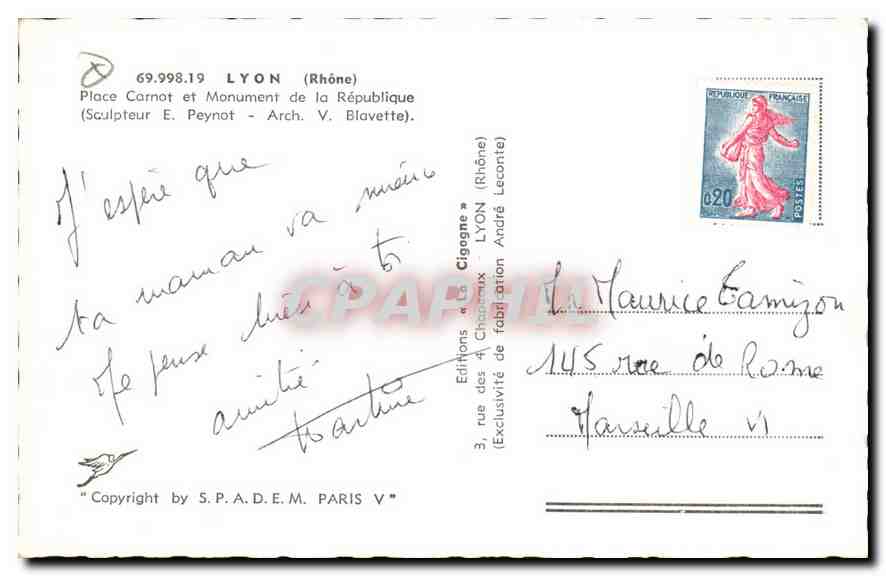 69.998.19 LYON (Rhône)
Place Carnot et Monument de la République
(Sculpteur E. Peynot - Arch. V. Blavette).
J'espère que
ta maman va mieux
Je pense bien à toi
amitié
Martine
"Copyright by S.P.A.D.E.M. PARIS V"
Editions « La Cigogne »
3, rue des 4 Chapeaux - LYON (Rhône)
(Exclusivité de fabrication André Leconte)
REPUBLIQUE FRANÇAISE
0,20
POSTES
Mr Maurice Tamizon
145 rue de Rome
Marseille VI
CPAPHIL